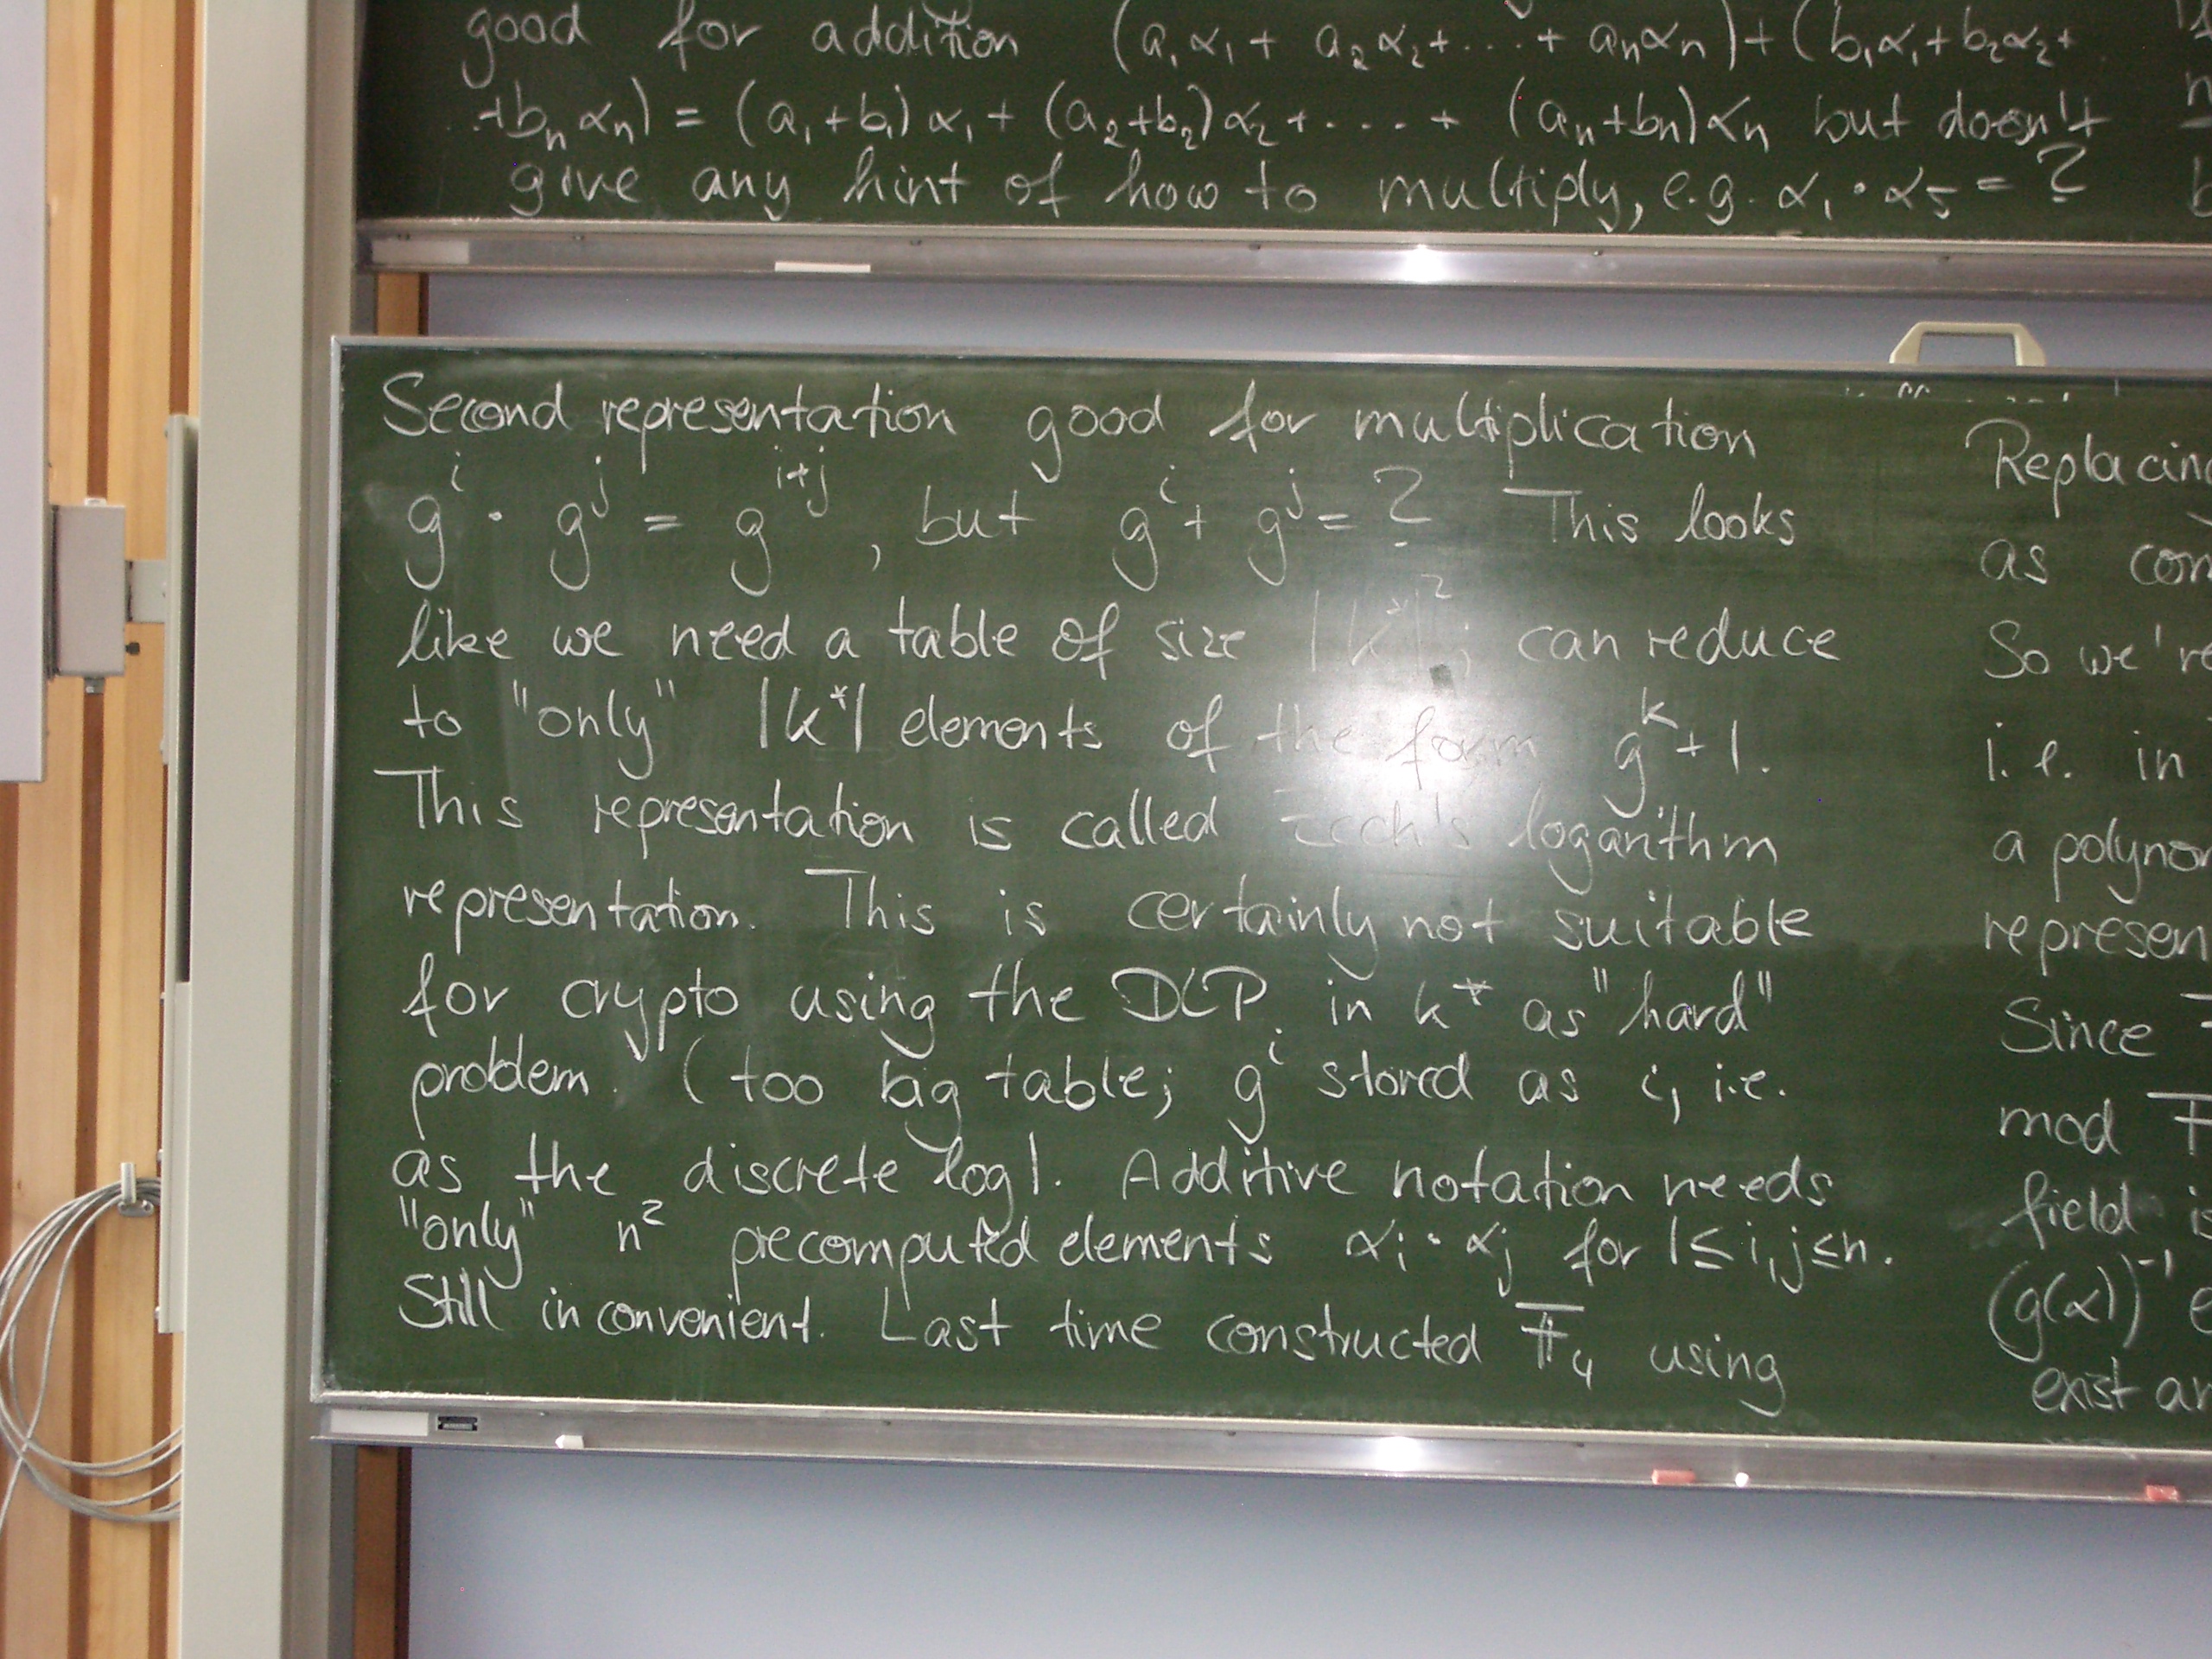 good for addition (a₁α₁ + a₂α₂+...+ aₙαₙ)+(b₁α₁+b₂α₂+
+bₙαₙ) = (a₁+b₁)α₁ + (a₂+b₂)α₂+....+ (aₙ+bₙ)αₙ but doesn't
give any hint of how to multiply, e.g. α₁·α₅ = ?
Second representation good for multiplication
gⁱ · gʲ = gⁱ⁺ʲ, but gⁱ + gʲ = ? This looks
like we need a table of size |k*|²; can reduce
to "only" |k*| elements of the form gᵏ+1.
This representation is called Zech's logarithm
representation. This is certainly not suitable
for crypto using the DLP in k* as "hard"
problem. (too big table; gⁱ stored as i, i.e.
as the discrete log). Additive notation needs
"only" n² precomputed elements αᵢ·αⱼ for 1≤i,j≤n.
Still inconvenient. Last time constructed 𝔽₄ using
Replacing
as
So we're
i.e. in
a
Since
mod
field
(g(α))⁻¹
exist